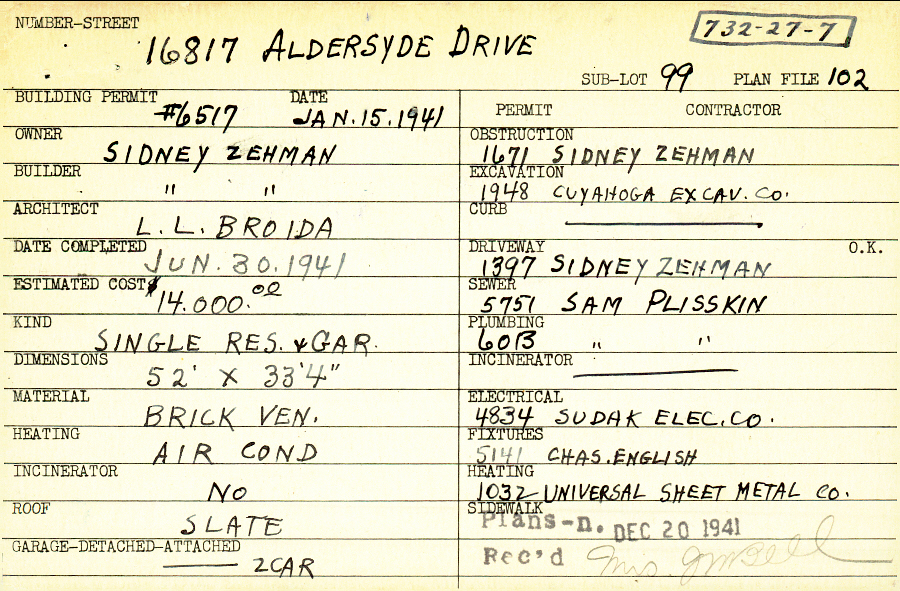 NUMBER-STREET
732-27-7
16817 ALDERSYDE DRIVE
SUB-LOT 99 PLAN FILE 102
BUILDING PERMIT DATE
#6517 JAN.15.1941
OWNER
SIDNEY ZEHMAN
BUILDER
" "
ARCHITECT
L.L. BROIDA
DATE COMPLETED
JUN.30.1941
ESTIMATED COST
$14.000.00
KIND
SINGLE RES. & GAR.
DIMENSIONS
52' X 33'4"
MATERIAL
BRICK VEN.
HEATING
AIR COND
INCINERATOR
NO
ROOF
SLATE
GARAGE-DETACHED-ATTACHED
2CAR
PERMIT CONTRACTOR
OBSTRUCTION
1671 SIDNEY ZEHMAN
EXCAVATION
1948 CUYAHOGA EXCAV. CO.
CURB
DRIVEWAY O.K.
1397 SIDNEY ZEHMAN
SEWER
5751 SAM PLISSKIN
PLUMBING
60B " "
INCINERATOR
ELECTRICAL
4834 SUDAK ELEC.CO.
FIXTURES
5141 CHAS.ENGLISH
HEATING
1032 UNIVERSAL SHEET METAL CO.
SIDEWALK
Plans-n. DEC 20 1941
Rec'd Mrs.